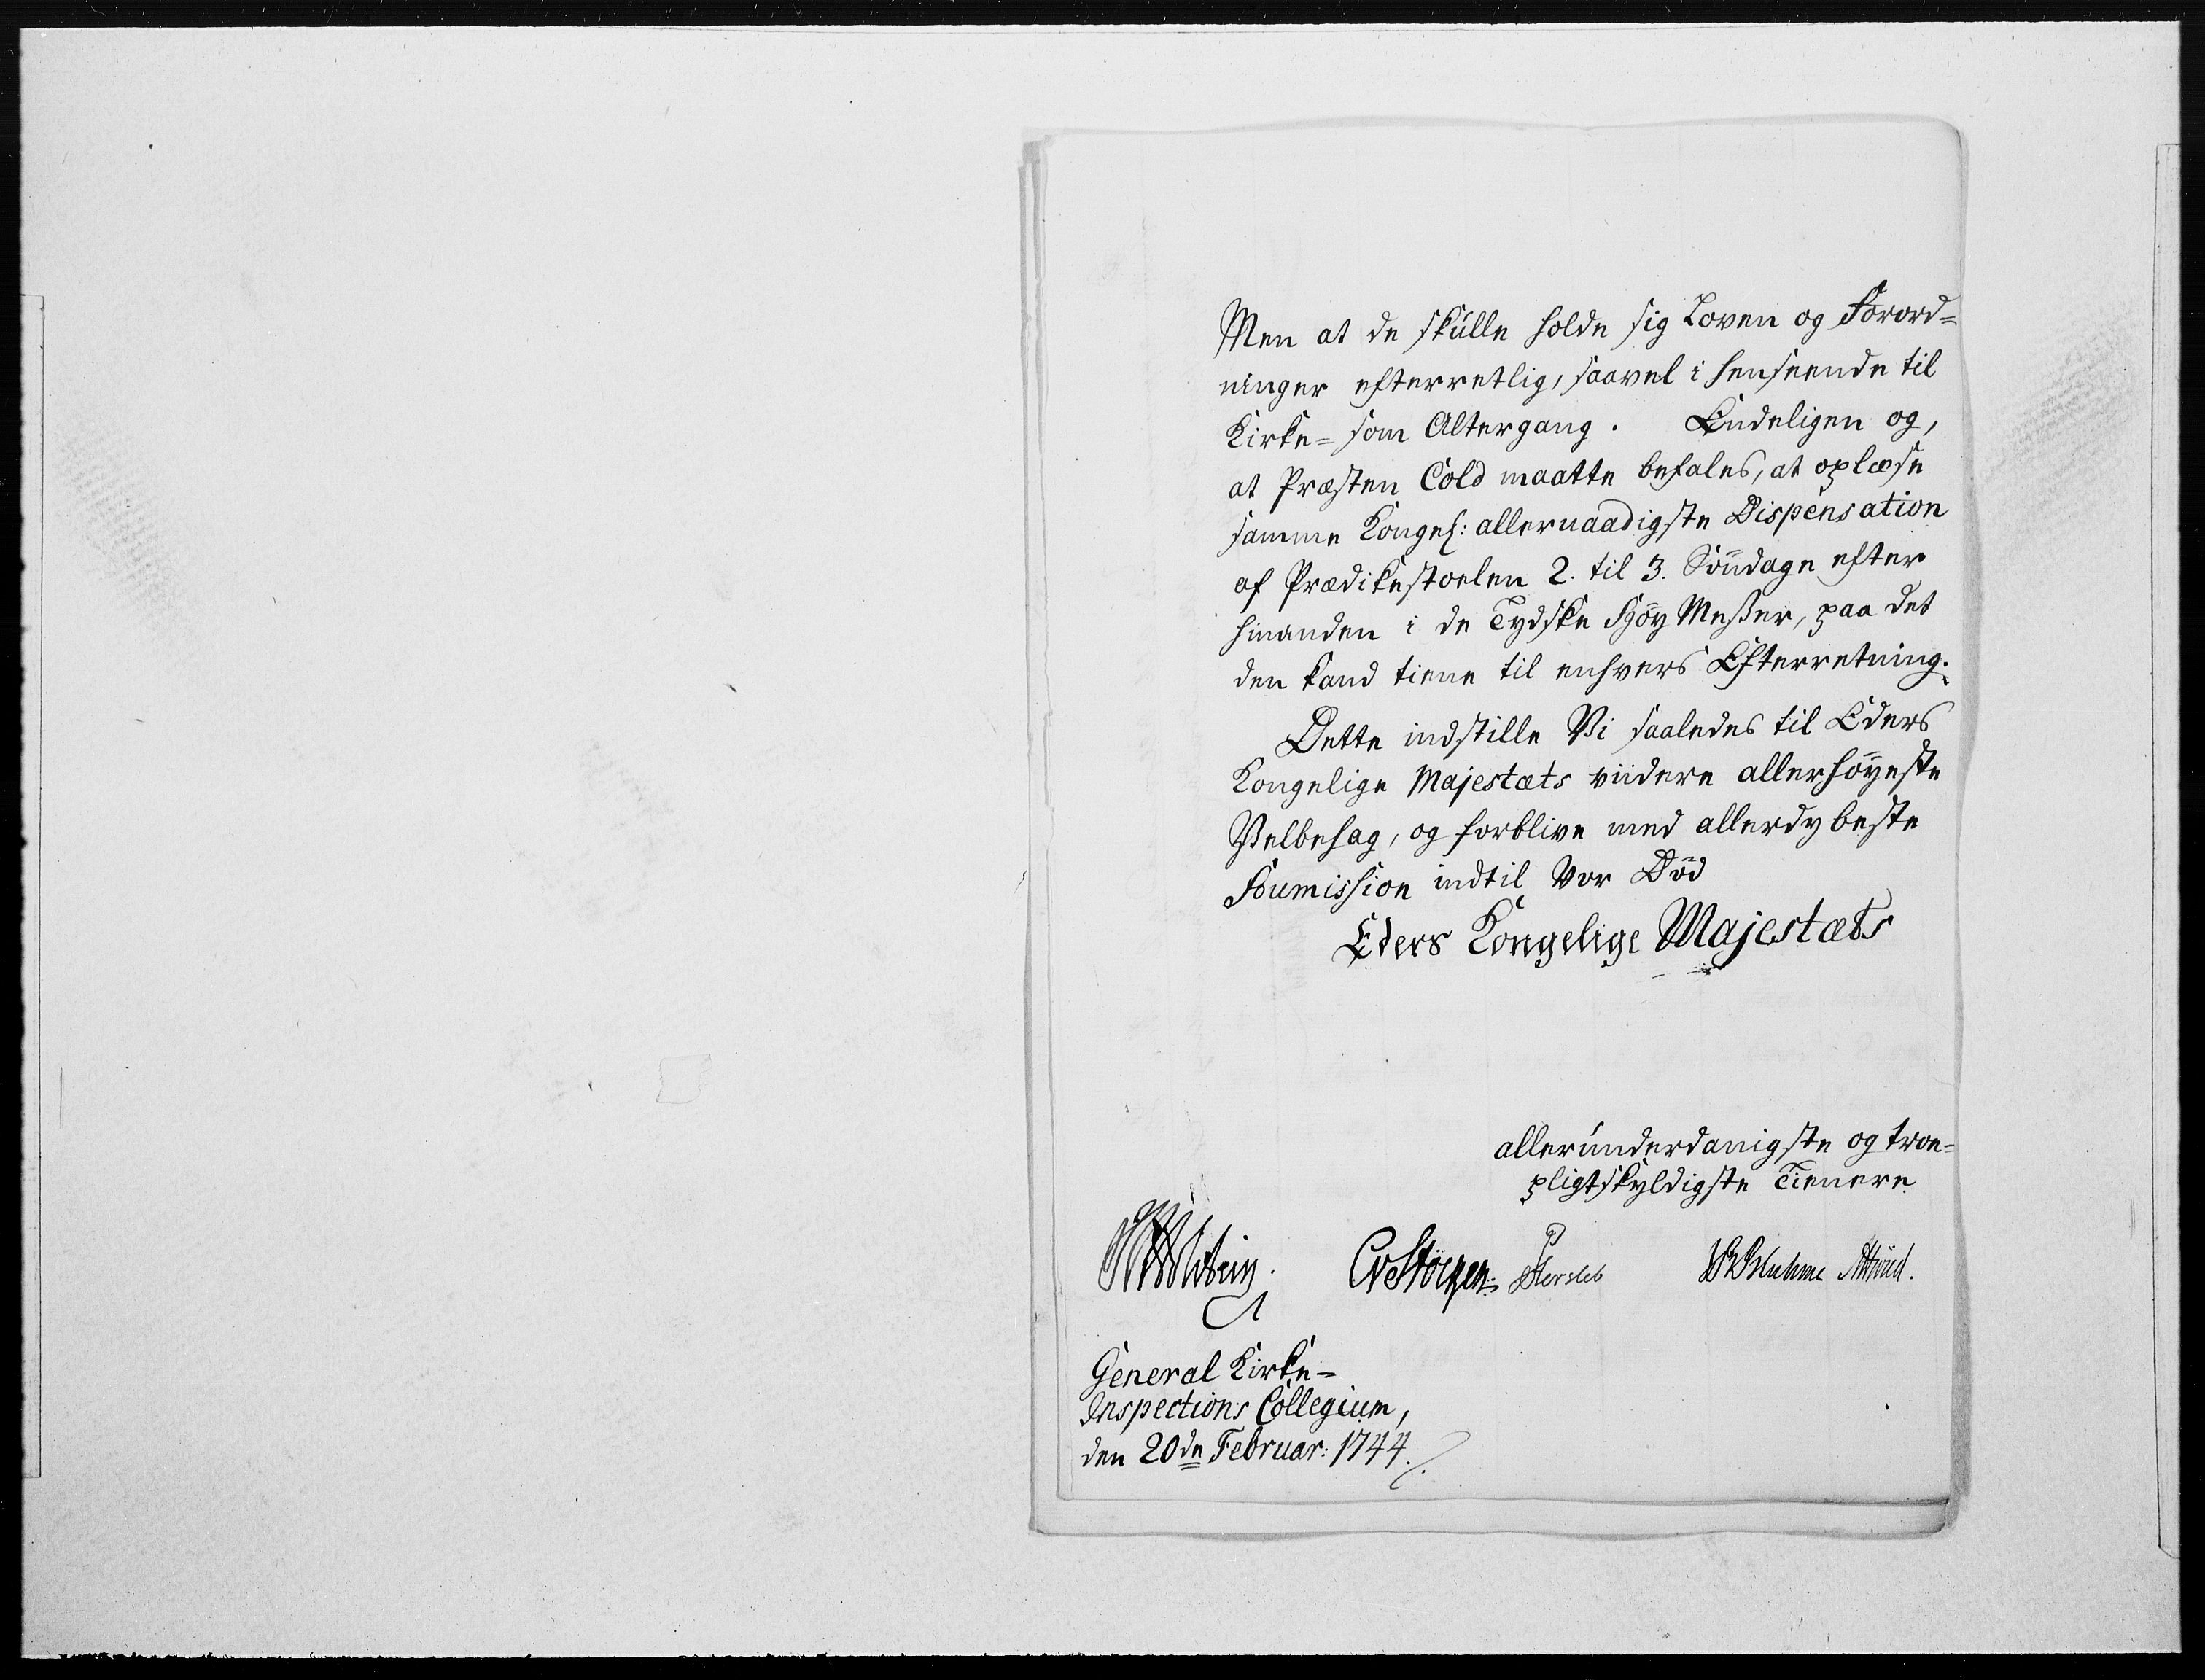 Men at de skulle holde sig Loven og Forord=
ninger efterretlig, saavel i henseende til
Kirke= som Altergang. Endeligen og,
at Præsten Cold maatte befales, at oplæse
samme Kongel: allernaadigste Dispensation
af Prædikestoelen 2. til 3. Søndage efter
hinanden i de Tydske Høy Messer, paa det
den kand tiene til enhvers Efterretning.
Dette indstille Vi saaledes til Eders
Kongelige Majestæts viidere allerhøyeste
Velbehag, og forblive med allerdybeste
Soumission indtil Vor Død
Eders Kongelige Majestæts
allerunderdanigste og troe=
pligtskyldigste Tienere
Holstein. CvStöcken. PHersleb BlBluhme
General Kirke=
Inspections Collegium,
den 20de Februar: 1744.